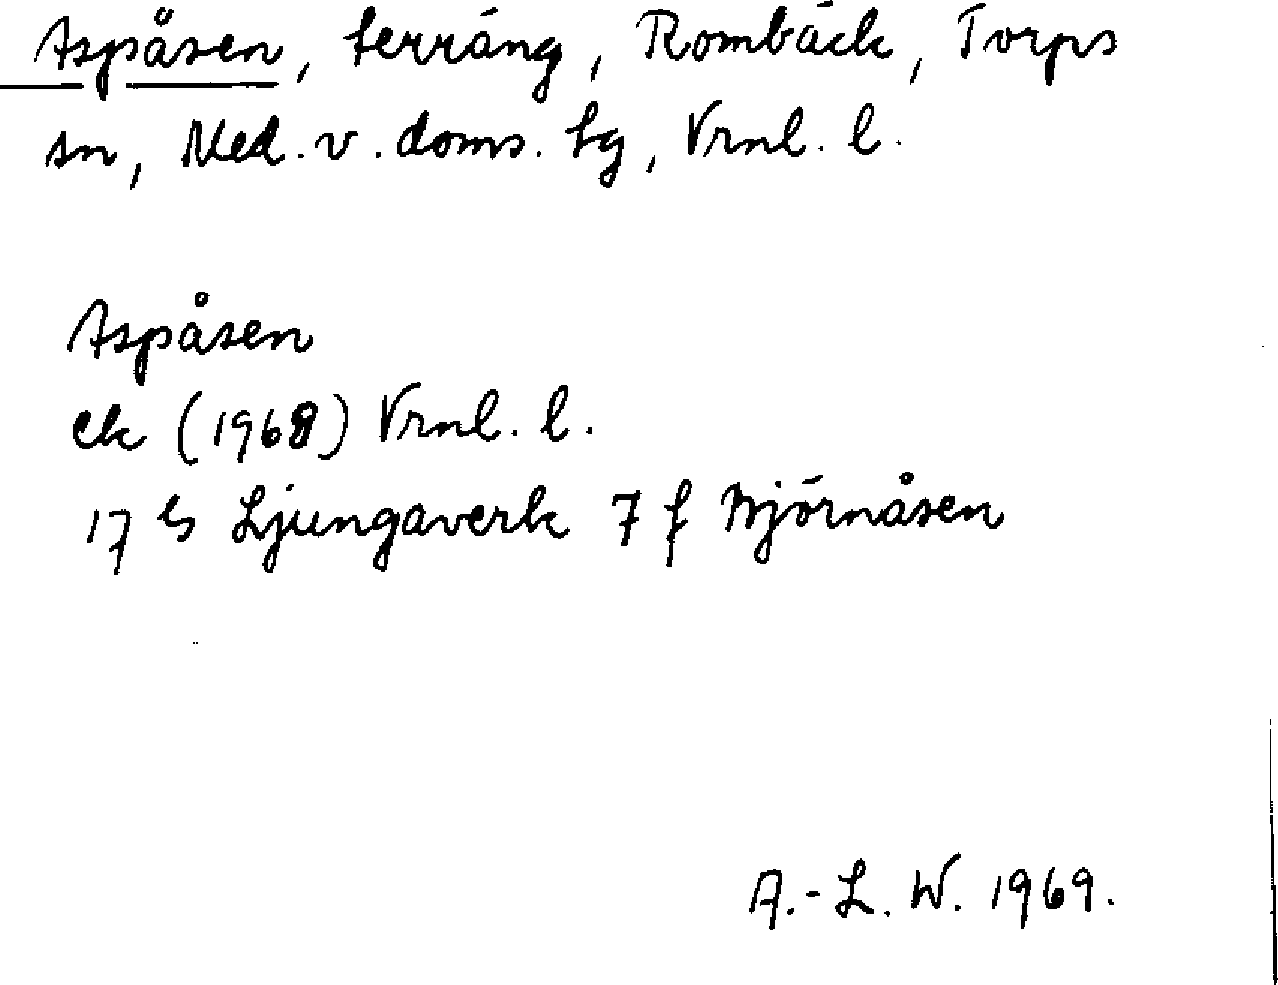 Aspåsen, terräng, Rombäck, Torps
sn, Med. v. doms. tg, Vrnl. l.
Aspåsen
ek (1968) Vrnl. l.
17 G Ljungaverk 7 f Björnåsen
A.-L. W. 1969.